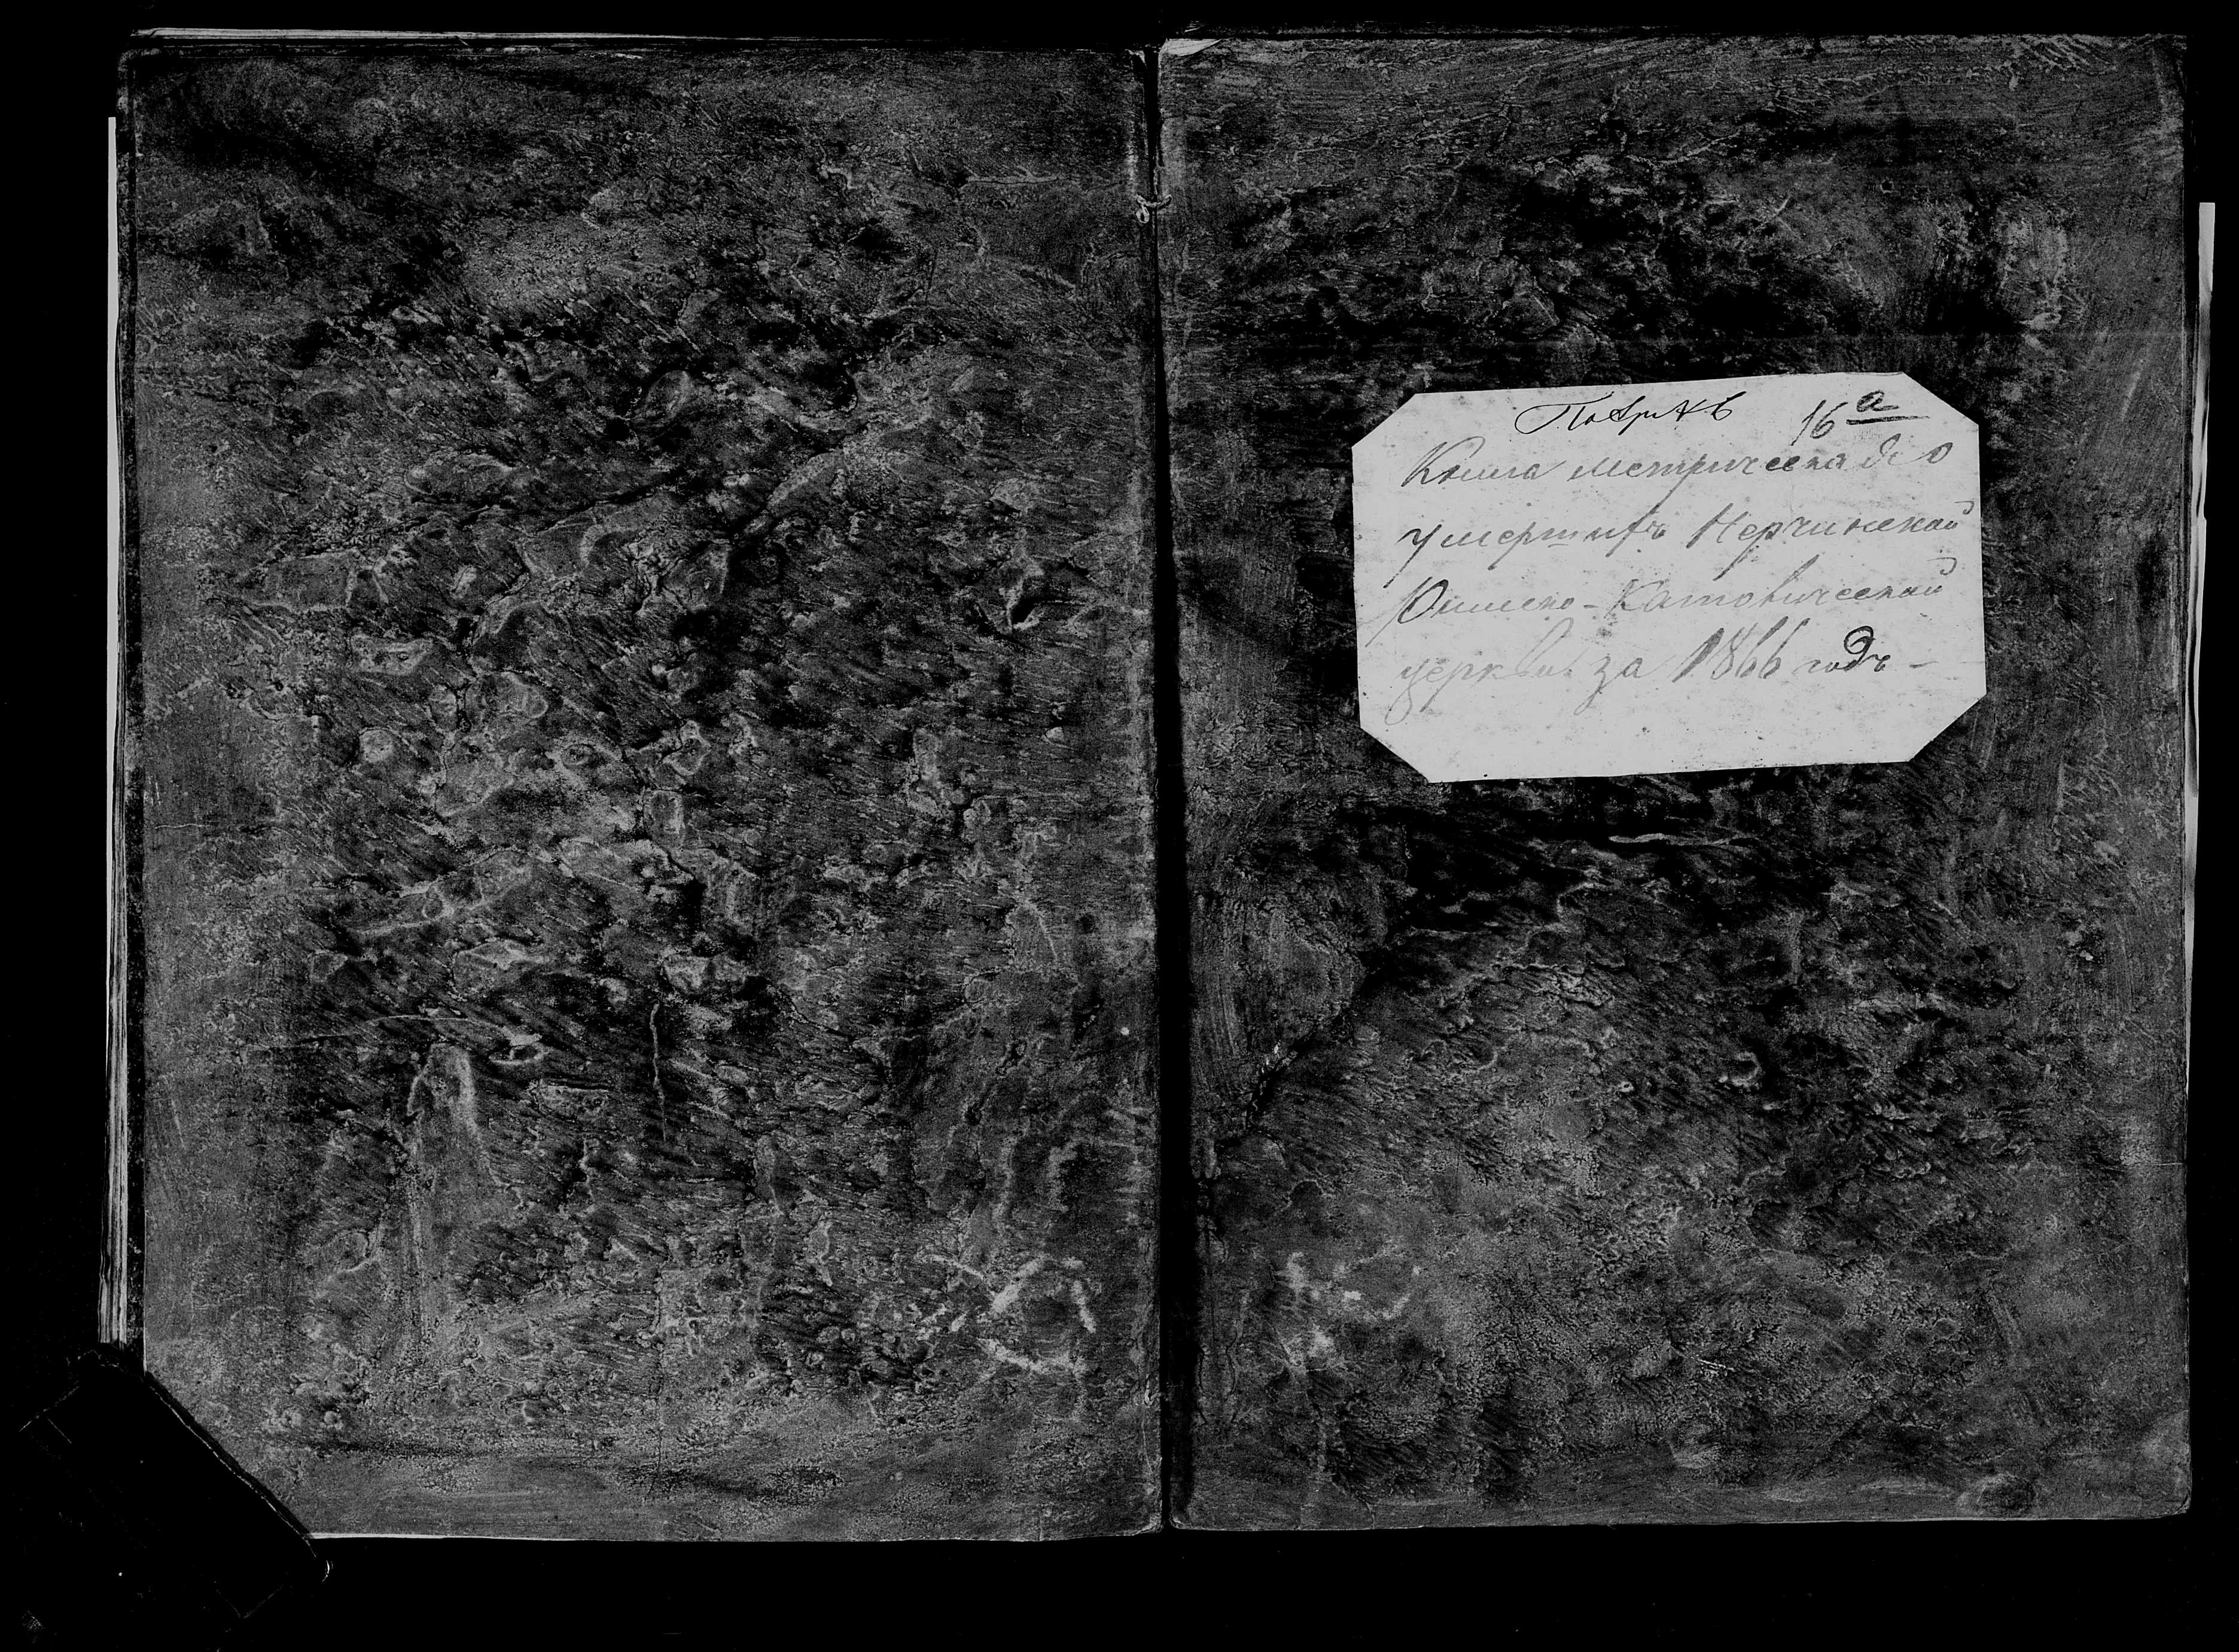 16 а
Книга метрическая о
умершихъ Нерчинской
Римско-Католической
церкви за 1866 годъ –